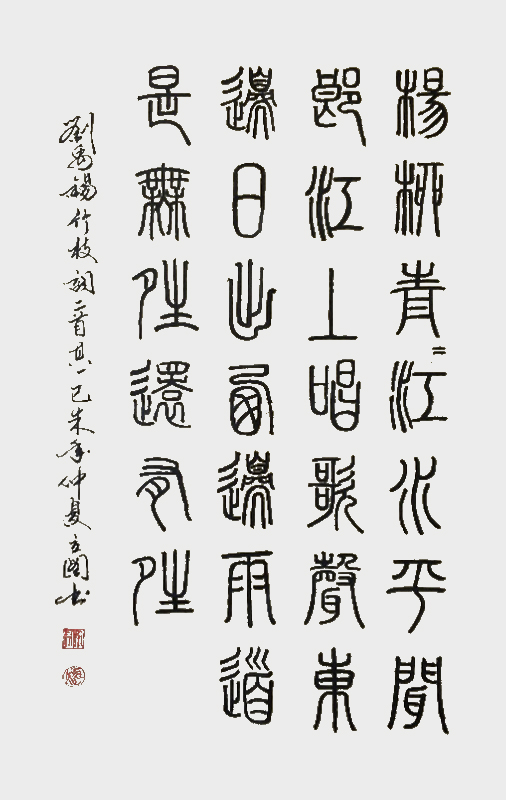 楊柳青〻江水平聞
郎江上唱歌聲東
邊日出西邊雨道
是無夝還有夝
劉禹錫竹枝詞二首其一己未年仲夏立書